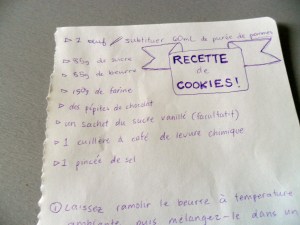 ▷ 1 oeuf / substituer 60mL de purée de pommes
▷ 85g de sucre
▷ 85g de beurre
▷ 150g de farine
▷ des pépites de chocolat
▷ un sachet du sucre vanillé (facultatif)
▷ 1 cuillère à café de levure chimique
▷ 1 pincée de sel
RECETTE
de
COOKIES!
① Laissez ramolir le beurre à température
ambiante puis mélangez-le dans un